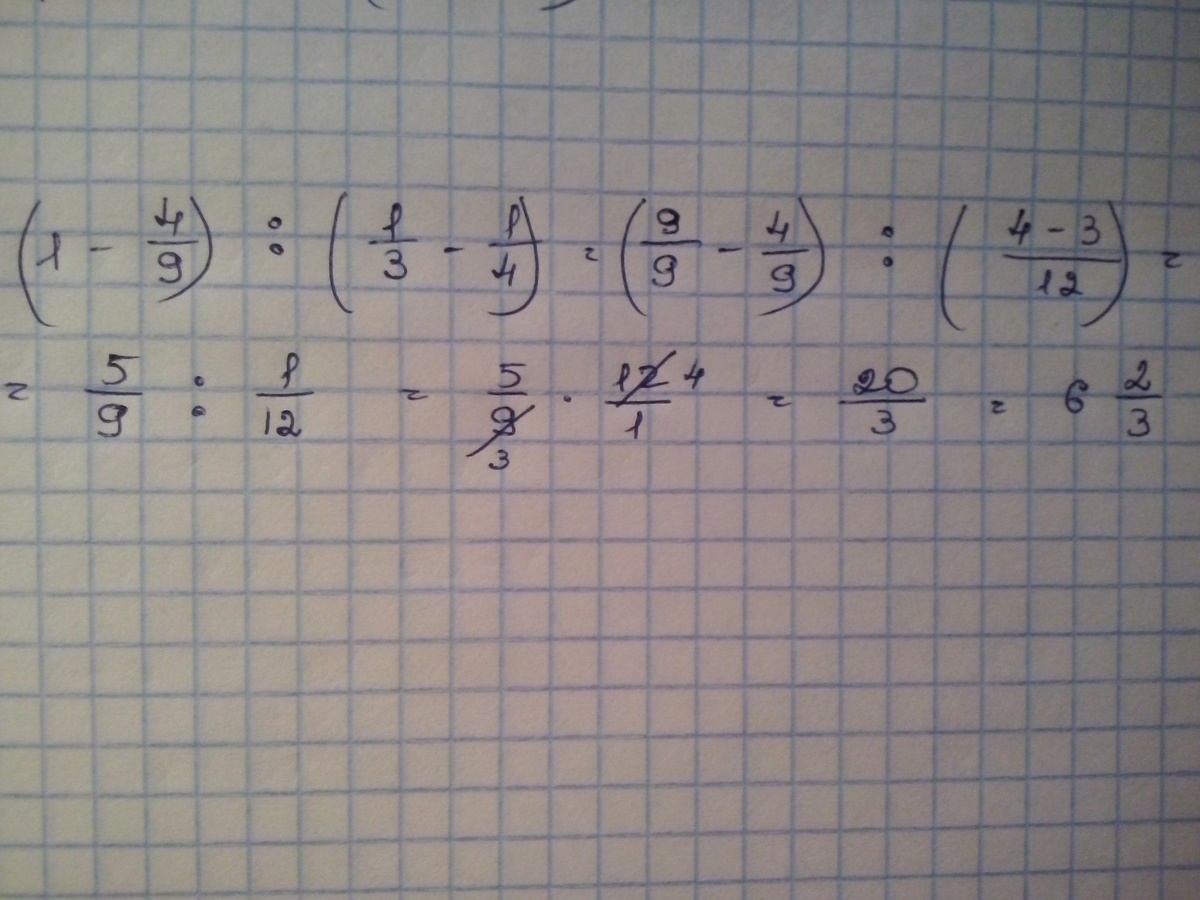 (1 - 4/9) : (1/3 - 1/4) = (9/9 - 4/9) : ((4 - 3)/12) =
= 5/9 : 1/12 = 5/9 3 · 12/1 4 = 20/3 = 6 2/3